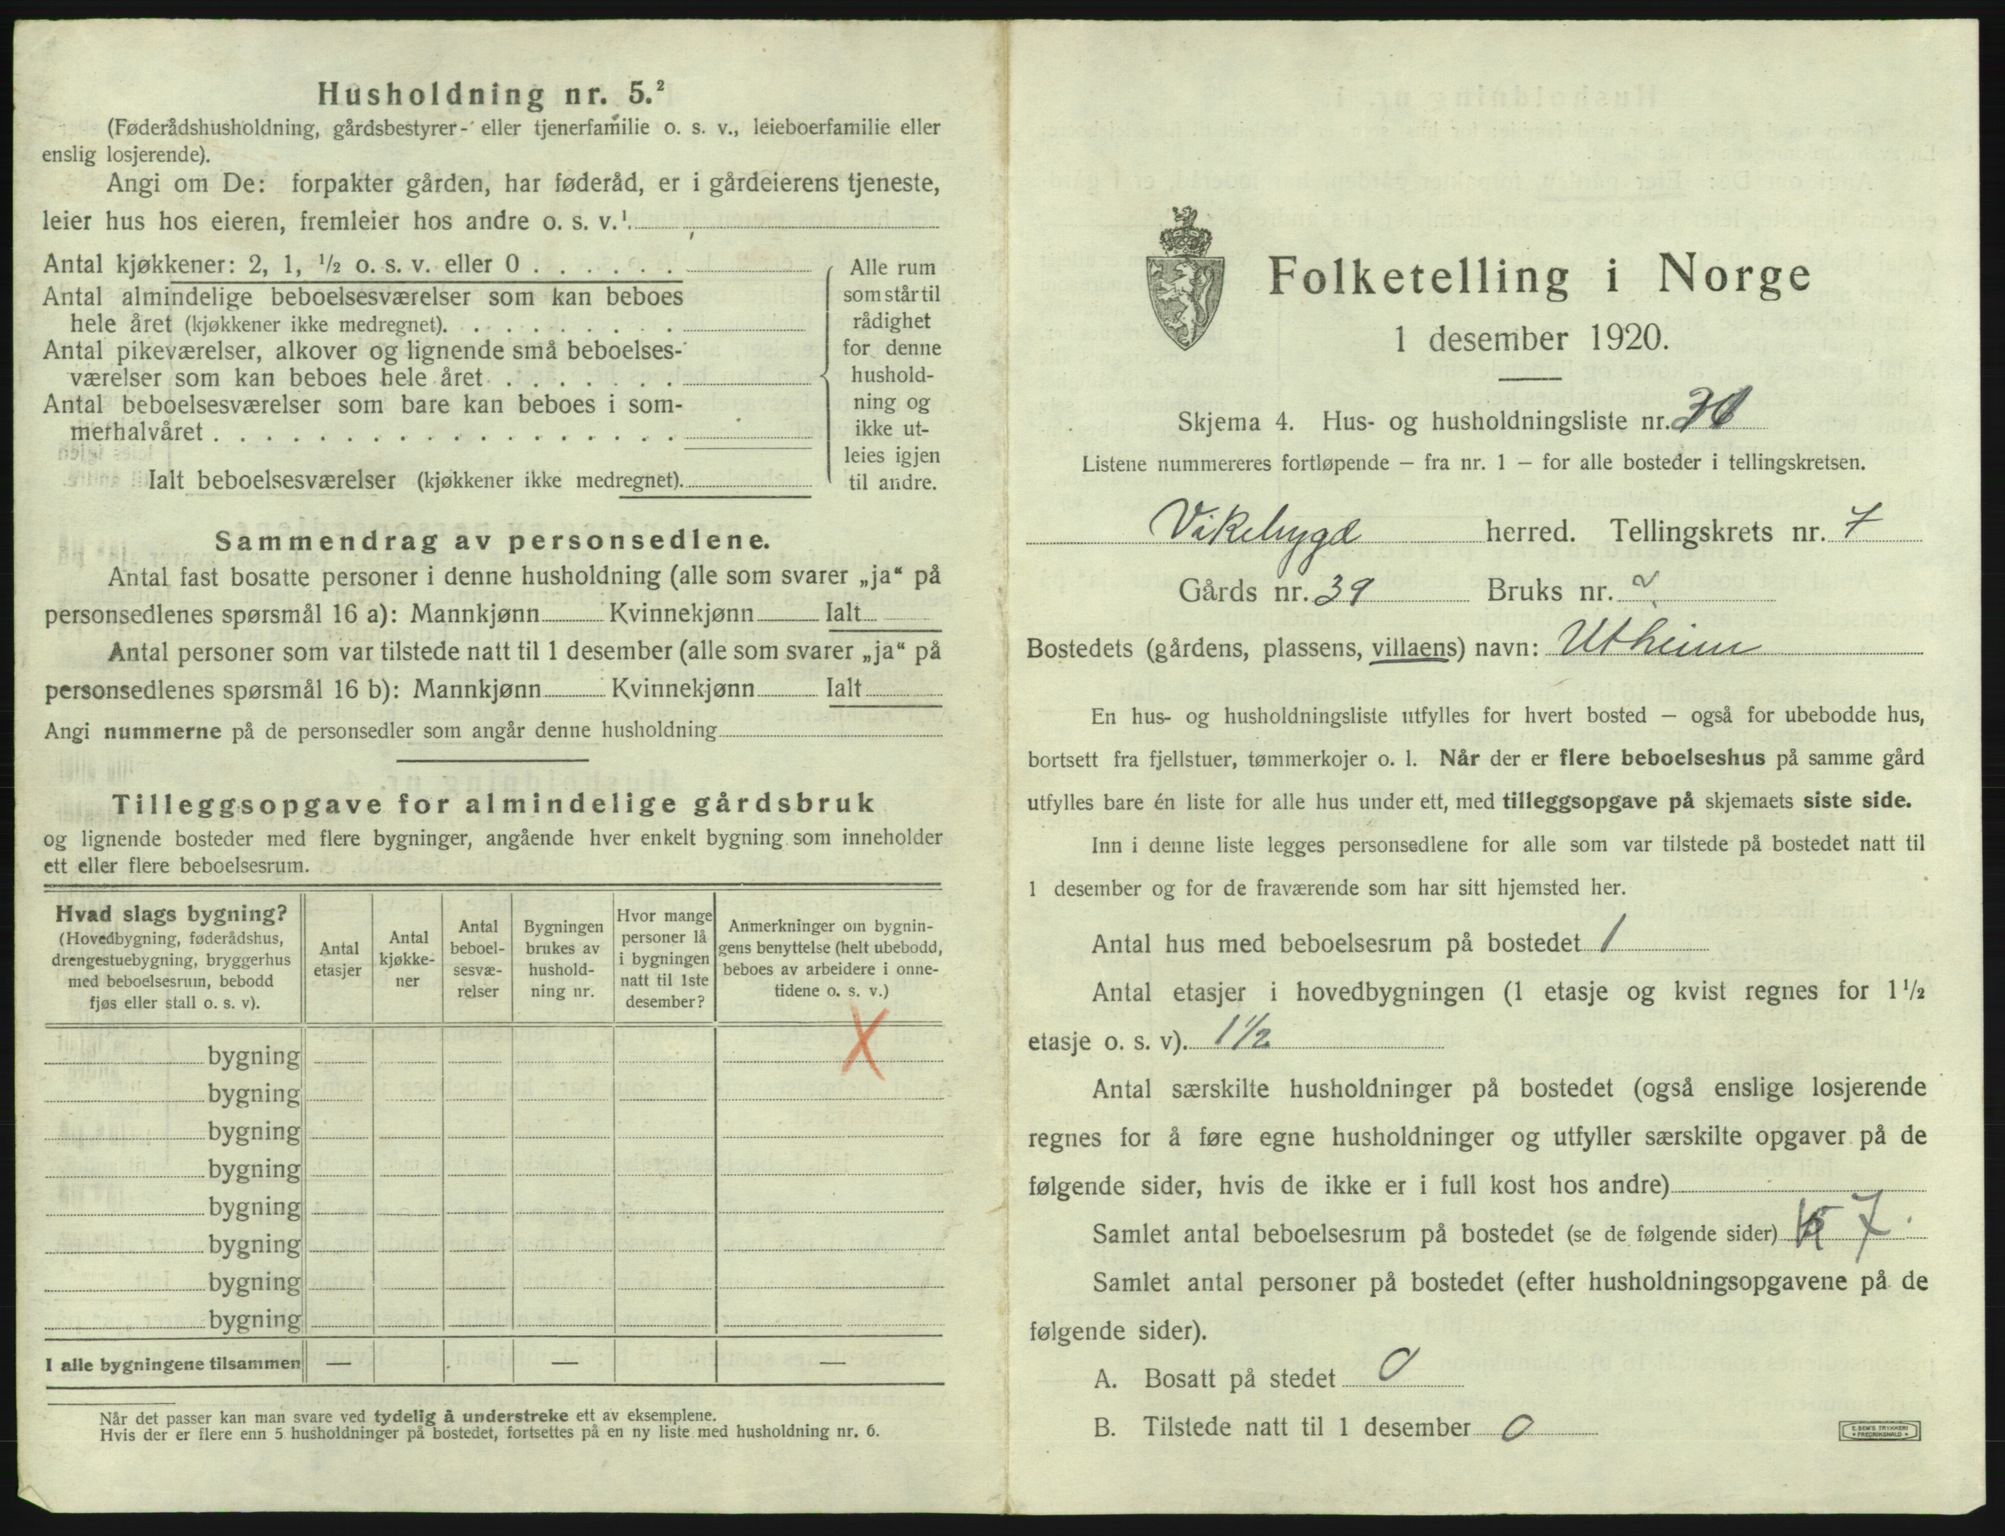 Husholdning nr. 5.²
(Føderådshusholdning, gårdsbestyrer- eller tjenerfamilie o. s. v., leieboerfamilie eller
enslig losjerende).
Angi om De: forpakter gården, har føderåd, er i gårdeierens tjeneste,
leier hus hos eieren, fremleier hos andre o. s. v.¹
Antal kjøkkener: 2, 1, ½ o. s. v. eller 0
Antal almindelige beboelsesværelser som kan beboes
hele året (kjøkkener ikke medregnet).
Antal pikeværelser, alkover og lignende små beboelses-
værelser som kan beboes hele året
Antal beboelsesværelser som bare kan beboes i som-
merhalvåret
Ialt beboelsesværelser (kjøkkener ikke medregnet).
Alle rum
som står til
rådighet
for denne
hushold-
ning og
ikke ut-
leies igjen
til andre.
Sammendrag av personsedlene.
Antal fast bosatte personer i denne husholdning (alle som svarer „ja“ på
personsedlenes spørsmål 16 a): Mannkjønn Kvinnekjønn Ialt
Antal personer som var tilstede natt til 1 desember (alle som svarer „ja“ på
personsedlenes spørsmål 16 b): Mannkjønn Kvinnekjønn Ialt
Angi nummerne på de personsedler som angår denne husholdning
Tilleggsopgave for almindelige gårdsbruk
og lignende bosteder med flere bygninger, angående hver enkelt bygning som inneholder
ett eller flere beboelsesrum.
Hvad slags bygning?
(Hovedbygning, føderådshus,
drengestuebygning, bryggerhus
med beboelsesrum, bebodd
fjøs eller stall o. s. v).
Antal
etasjer
Antal
kjøkke-
ner
Antal
beboel-
sesvæ-
relser
Bygningen
brukes av
hushold-
ning nr.
Hvor mange
personer lå
i bygningen
natt til 1ste
desember?
Anmerkninger om bygnin-
gens benyttelse (helt ubebodd,
beboes av arbeidere i onne-
tidene o. s. v.)
bygning X
bygning
bygning
bygning
bygning
bygning
bygning
bygning
I alle bygningene tilsammen — — —
Når det passer kan man svare ved tydelig å understreke ett av eksemplene.
Hvis der er flere enn 5 husholdninger på bostedet, fortsettes på en ny liste med husholdning nr. 6.
Folketelling i Norge
1 desember 1920.
Skjema 4. Hus- og husholdningsliste nr.
Listene nummereres fortløpende – fra nr. 1 – for alle bosteder i tellingskretsen.
Vikebygd herred. Tellingskrets nr. 7
Gårds nr. 39 Bruks nr. 2
Bostedets (gårdens, plassens, villaens) navn: Utheim
En hus- og husholdningsliste utfylles for hvert bosted – også for ubebodde hus,
bortsett fra fjellstuer, tømmerkojer o. l. Når der er flere beboelseshus på samme gård
utfylles bare én liste for alle hus under ett, med tilleggsopgave på skjemaets siste side.
Inn i denne liste legges personsedlene for alle som var tilstede på bostedet natt til
1 desember og for de fraværende som har sitt hjemsted her.
Antal hus med beboelsesrum på bostedet 1
Antal etasjer i hovedbygningen (1 etasje og kvist regnes for 1½
etasje o. s. v). 1½
Antal særskilte husholdninger på bostedet (også enslige losjerende
regnes for å føre egne husholdninger og utfyller særskilte opgaver på de
følgende sider, hvis de ikke er i full kost hos andre)
Samlet antal beboelsesrum på bostedet (se de følgende sider) 7
Samlet antal personer på bostedet (efter husholdningsopgavene på de
følgende sider).
A. Bosatt på stedet 0
B. Tilstede natt til 1 desember 0
E. SEM'S TRYKKERI
FREDRIKSHALD